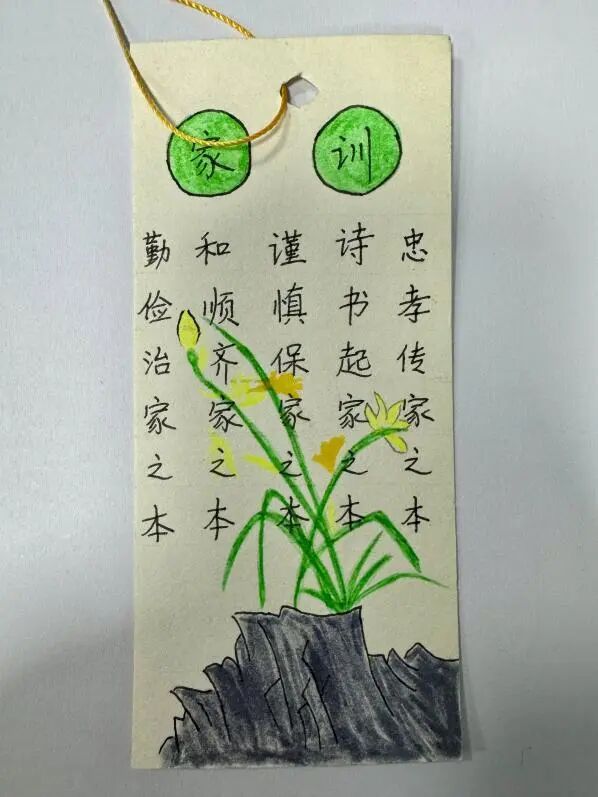 家训
忠孝传家之本
诗书起家之本
谨慎保家之本
和顺齐家之本
勤俭治家之本